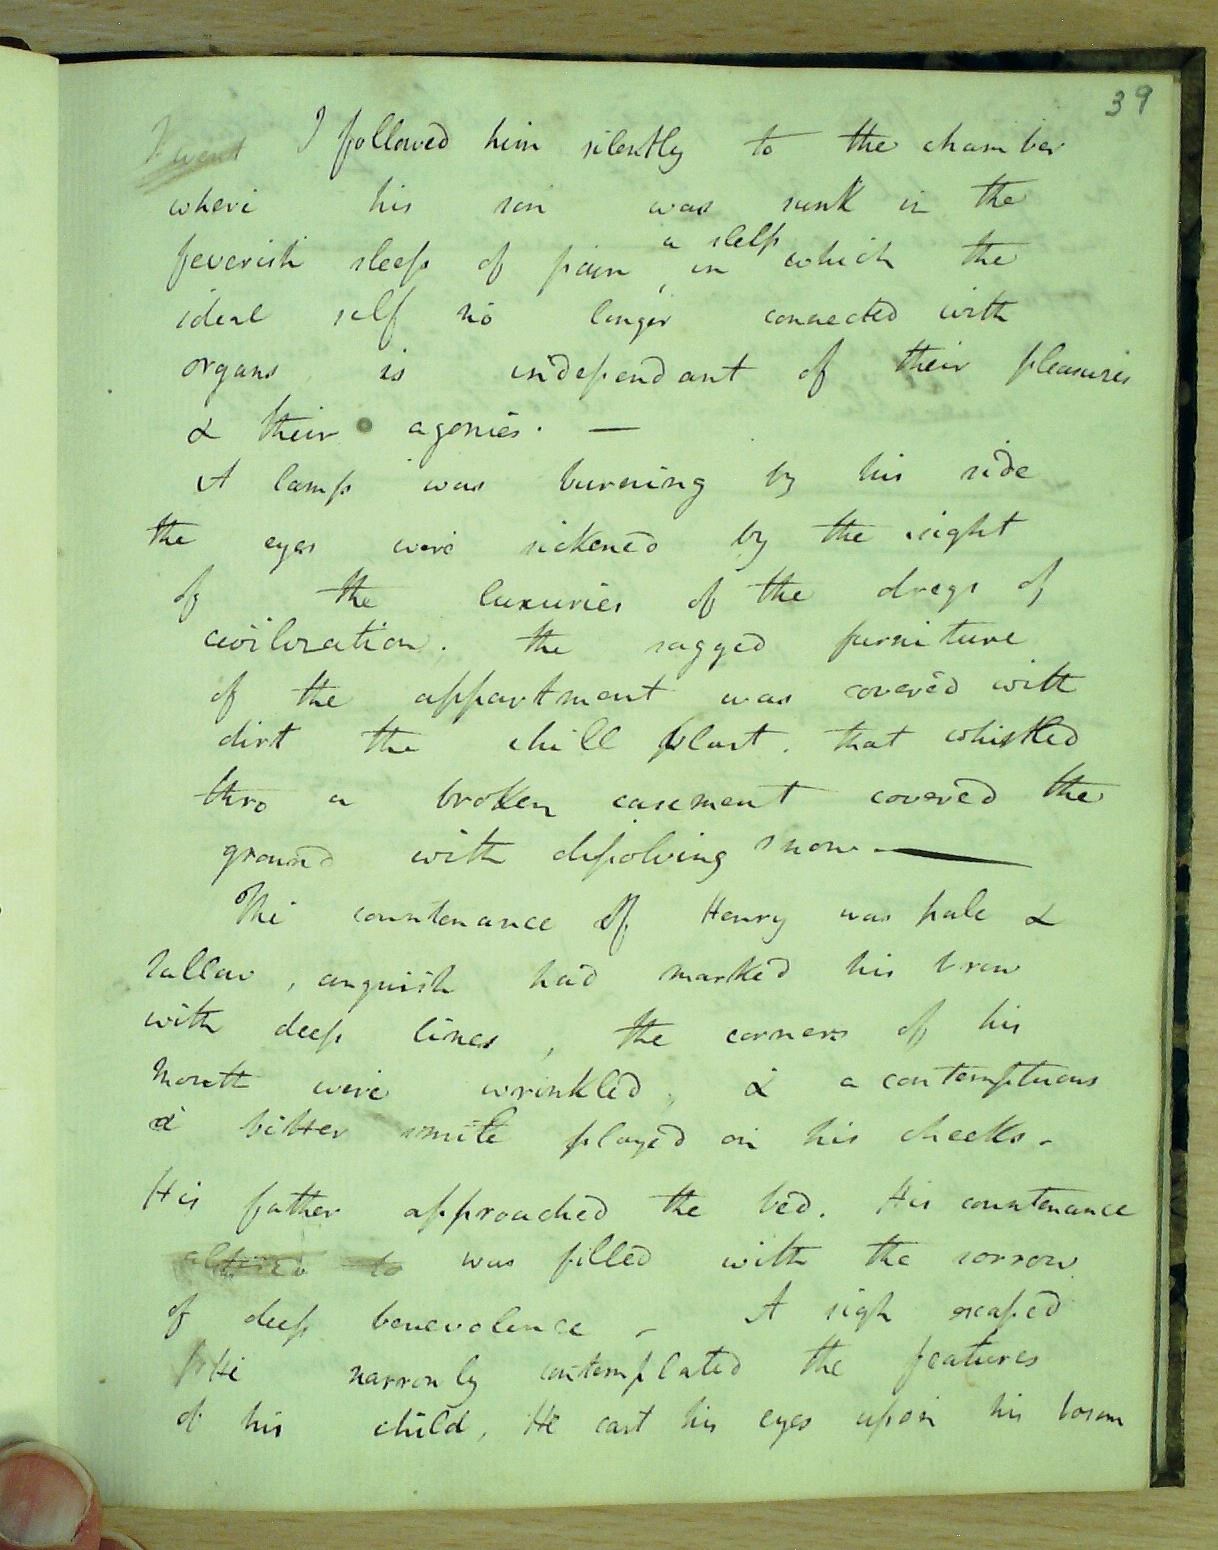 39
I went I followed him silently to the chamber
where his son was sunk in the
feverish sleep of pain a sleep in which the
ideal self no longer connected with
organs, is independant of their pleasures
& their agonies. —
A lamp was burning by his side
the eyes were sickened by the sight
of the luxuries of the dregs of
civilization. the ragged furniture
of the appartment was covered with
dirt the chill blast. that whistled
thro a broken casement covered the
ground with dissolving snow —
The countenance of Henry was pale &
sallow, anguish had marked his brow
with deep lines, the corners of his
mouth were wrinkled, & a contemptuous
& bitter smile played on his cheeks -
His father approached the bed. His countenance
altered to was filled with the sorrow
of deep benevolence - A sigh escaped
He narrowly contemplated the features
of his child, He cast his eyes upon his bosom